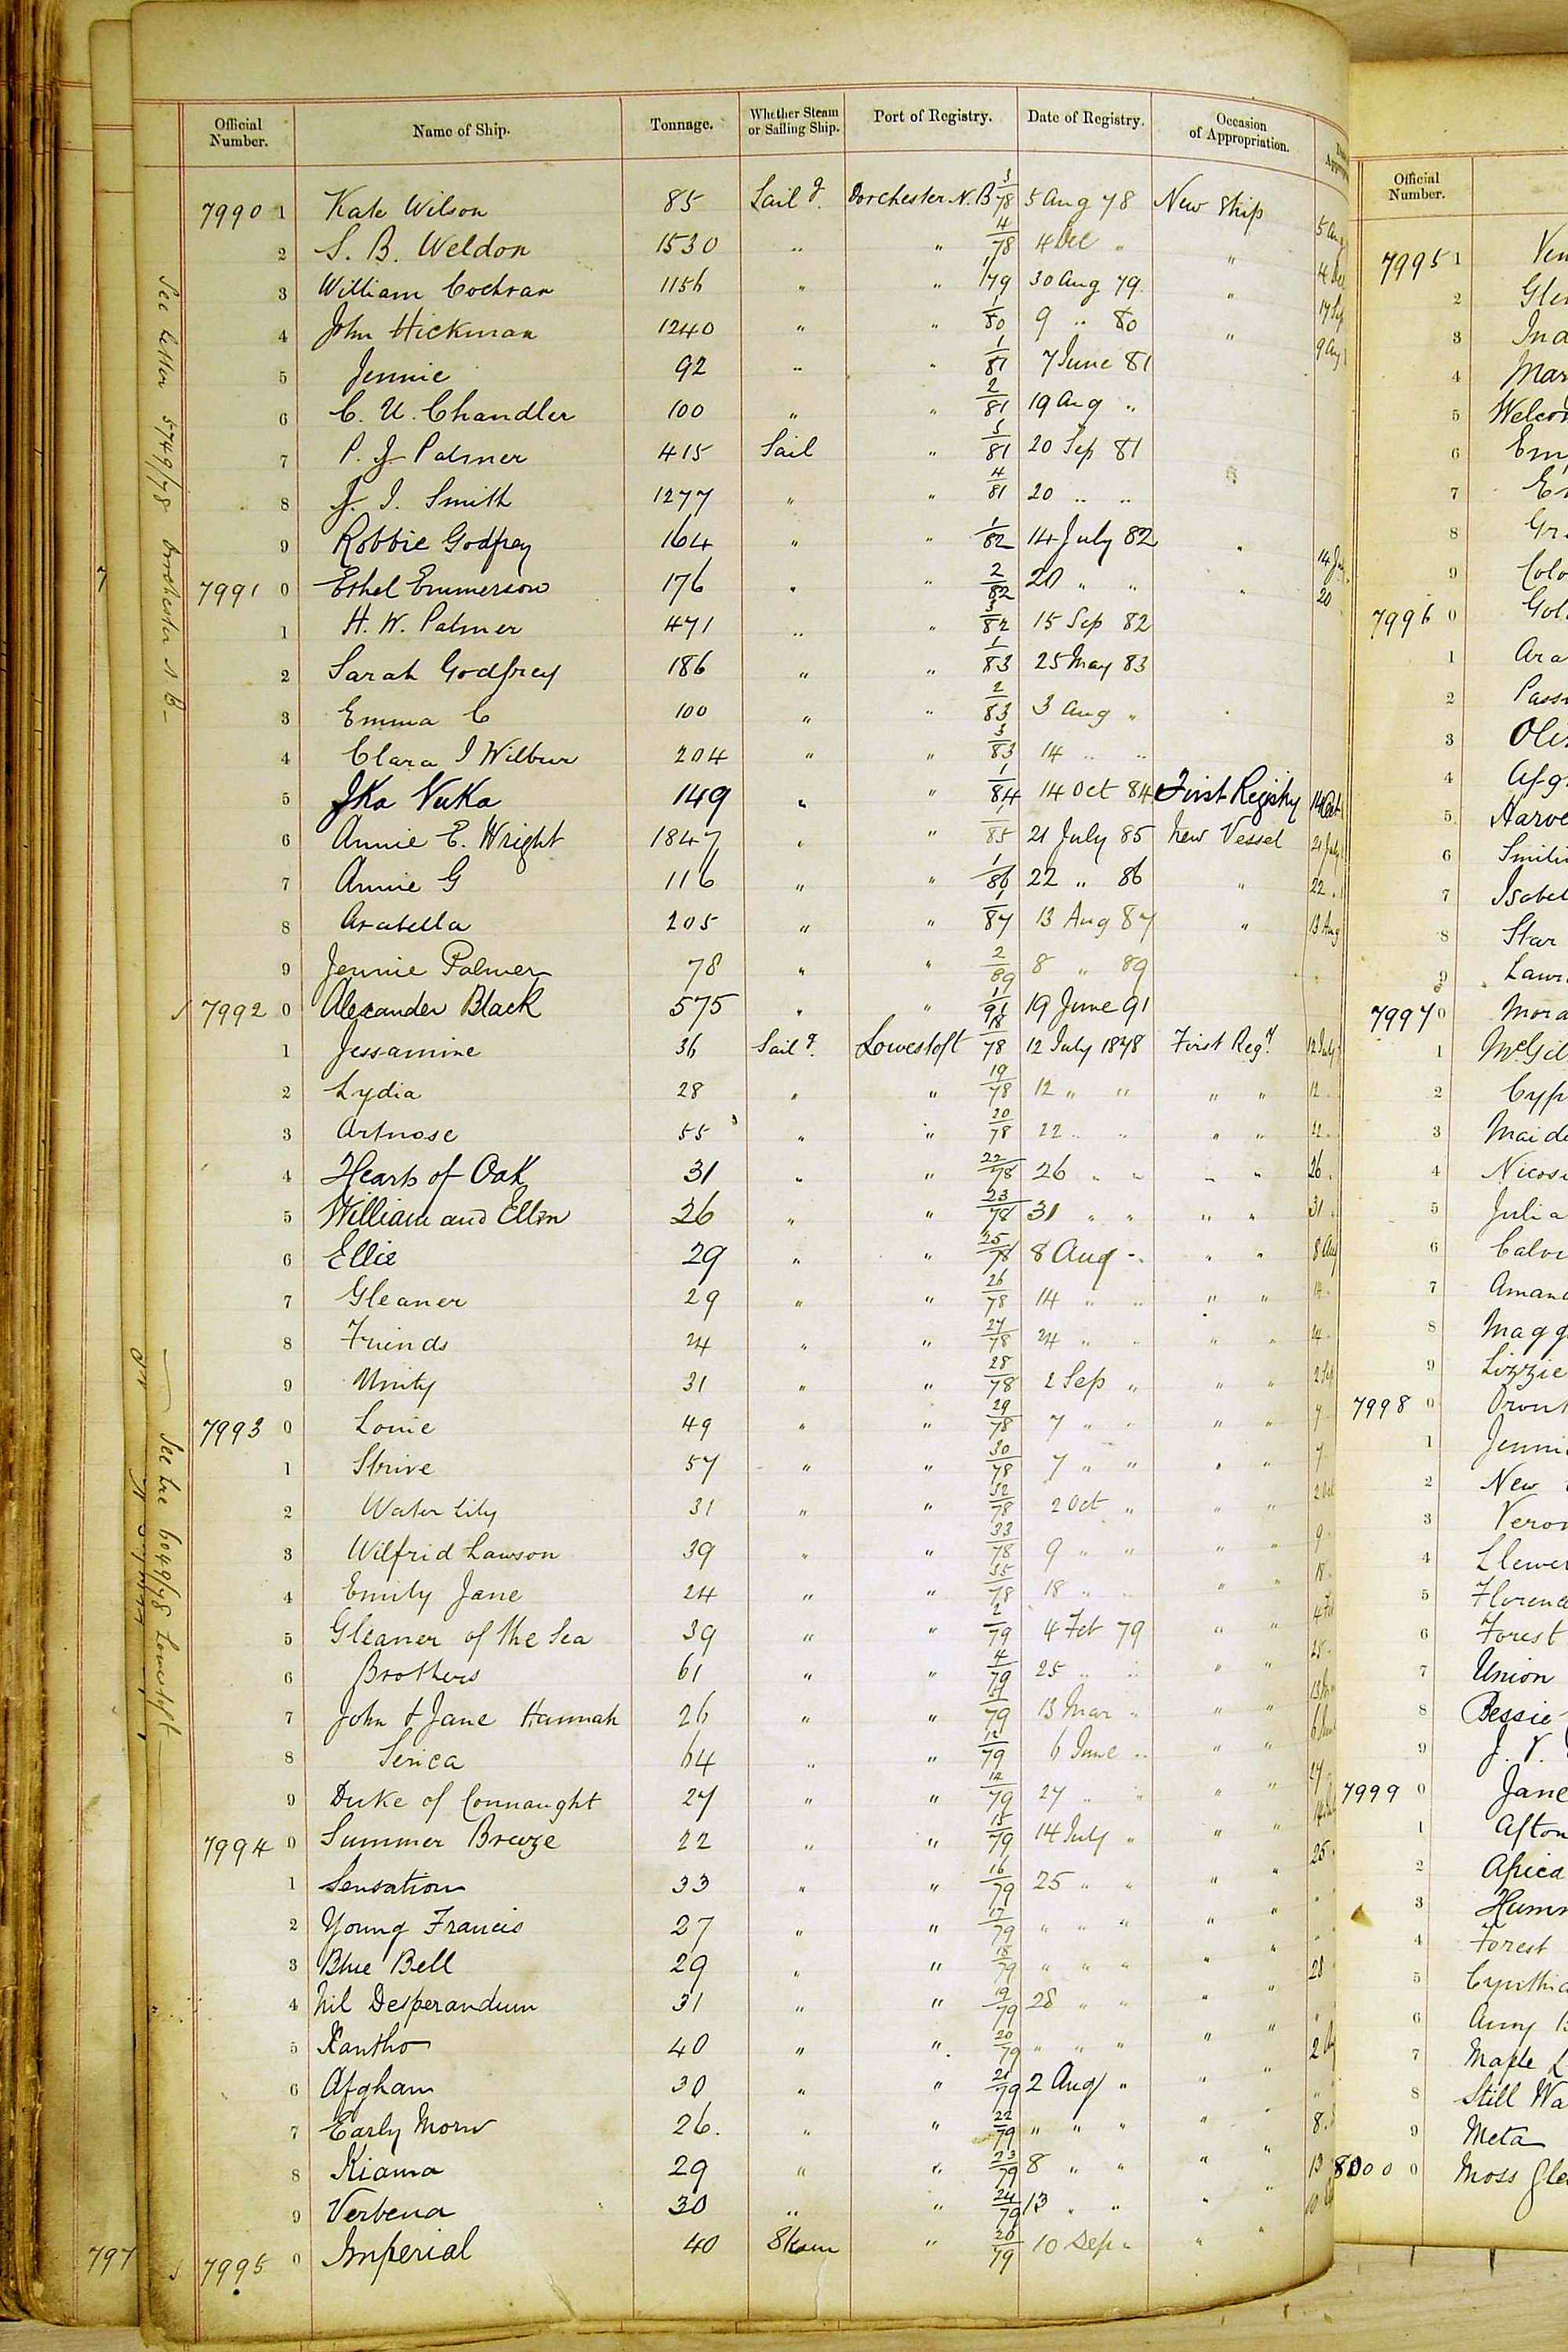 Official Number. Name of Ship. Tonnage. Whether Steam or Sailing Ship. Port of Registry. Date of Registry. Occasion of Appropriation.
7990 1 Kate Wilson 85 Sailg. Dorchester N.B 3/78 5 Aug 78 New Ship 5 Aug
2 S. B. Weldon 1530 " " 4/78 4 Dec " " 4 Dec
3 William Cochran 1156 " " 1/79 30 Aug 79 " 17 Sep
4 John Hickman 1240 " " 1/80 9 " 80 " 9 Aug
5 Jennie 92 " " 1/81 7 June 81
6 C. U. Chandler 100 " " 2/81 19 Aug "
7 P. J. Palmer 415 Sail " 3/81 20 Sep 81
8 J. I. Smith 1277 " " 4/81 20 " "
9 Robbie Godfrey 164 " " 1/82 14 July 82 "
7991 0 Ethel Emmerson 176 " " 2/82 20 " " " 20
1 H. W. Palmer 471 " " 3/82 15 Sep 82
2 Sarah Godfrey 186 " " 1/83 25 May 83
3 Emma C 100 " " 2/83 3 Aug "
4 Clara I Wilbur 204 " " 3/83 14 " "
5 Ika Vuka 149 " " 1/84 14 Oct 84 First Registry 14 Oct
6 Annie E. Wright 1847 " " 1/85 21 July 85 New Vessel 21 July
7 Annie G 116 " " 1/86 22 " 86 " 22 "
8 Arabella 205 " " 1/87 13 Aug 87 " 13 Aug
9 Jennie Palmer 78 " " 2/89 8 " 89
7992 0 Alexander Black 575 " " 1/91 19 June 91
1 Jessamine 36 Sailg. Lowestoft 18/78 12 July 1878 First Regy. 12 July
2 Lydia 28 " " 19/78 12 " " " " 12
3 55 " " 20/78 22 " " " " 22
4 Hearts of Oak 31 " " 22/78 26 " " " " 26
5 William and Ellen 26 " " 23/78 31 " " " " 31
6 Ellie 29 " " 25/78 8 Aug " " " 8 Aug
7 Gleaner 29 " " 26/78 14 " " " " 14
8 Friends 24 " " 27/78 24 " " " " 24
9 Unity 31 " " 28/78 2 Sep " " " 2 Sep
7993 0 Louie 49 " " 29/78 7 " " " " 7
1 Strive 57 " " 30/78 7 " " " " 7
2 Water Lily 31 " " 32/78 2 Oct " " " 2 Oct
3 Wilfrid Lawson 39 " " 33/78 9 " " " " 9
4 Emily Jane 24 " " 35/78 18 " " " " 18
5 Gleaner of the Sea 39 " " 2/79 4 Feb 79 " " 4 Feb
6 Brothers 61 " " 4/79 25 " " " " 25
7 John & Jane Hannah 26 " " 79 13 Mar " " "
8 Serica 64 " " 12/79 6 June " " "
9 Duke of Connaught 27 " " 14/79 27 " " " " 27
7994 0 Summer Breeze 22 " " 15/79 14 July " " "
1 Sensation 33 " " 16/79 25 " " " " 25
2 Young Francis 27 " " 17/79 " " " " "
3 Blue Bell 29 " " 18/79 " " " " "
4 Nil Desperandum 31 " " 19/79 28 " " " " 28
5 Xantho 40 " " 20/79 " " " " "
6 Afghan 30 " " 21/79 2 Aug " " " 2 Aug
7 Early Morn 26. " " 22/79 " " " " "
8 Kiama 29 " " 23/79 8 " " " " 8
9 Verbena 30 " " 24/79 13 " " " " 13
7995 0 Imperial 40 Steam " 26/79 10 Sep " " " 10
See letter 5749/78 Dorchester N B
See Lre 6049/78 Lowestoft
797
Official Number.
7995 1
2
3
4
5
6
7
8
9
7996 0
1
2
3
4
5
6
7
8 Star
9
7997 0
1
2
3
4
5 Julia
6
7
8
9 Lizzie
7998 0
1
2 New
3
4
5
6 Forest
7 Union
8 Bessie
9 J. V.
7999 0 Jane
1 Afton
2 Africa
3
4 Forest
5
6
7 Maple
8 Still
9 Meta
8000 0 Moss